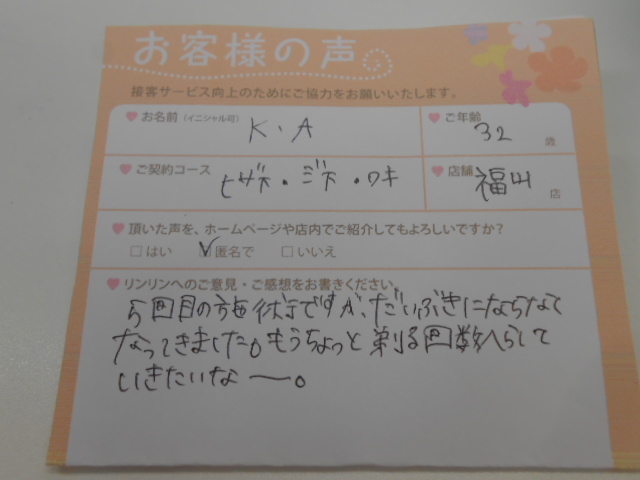 お客様の声
接客サービス向上のためにご協力をお願いいたします。
お名前(イニシャル可) K.A
ご年齢 32 歳
ご契約コース ヒザ下・ ・ワキ
店舗 福山 店
頂いた声を、ホームページや店内でご紹介してもよろしいですか?
□はい ☑匿名で □いいえ
リンリンへのご意見・ご感想をお書きください。
5回目の施術ですが、だいぶきにならなく
なってきました。もうちょっと剃る回数へらして
いきたいなー。